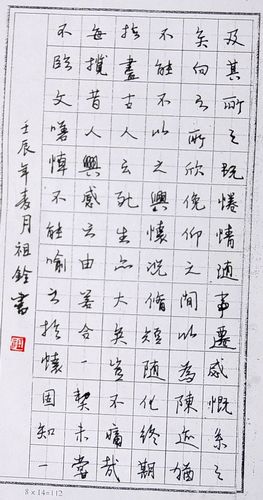 及其所之既惓情随事遷感慨系之
矣向之所欣俛仰之間以為陳迹猶
不能不以之興懷況脩短随化終期
於盡古人云死生亦大矣豈不痛哉
每攬昔人興感之由若合一契未嘗
不臨文嗟悼不能喻之於懷固知一
壬辰年麦月祖銓書
8 x 14=112